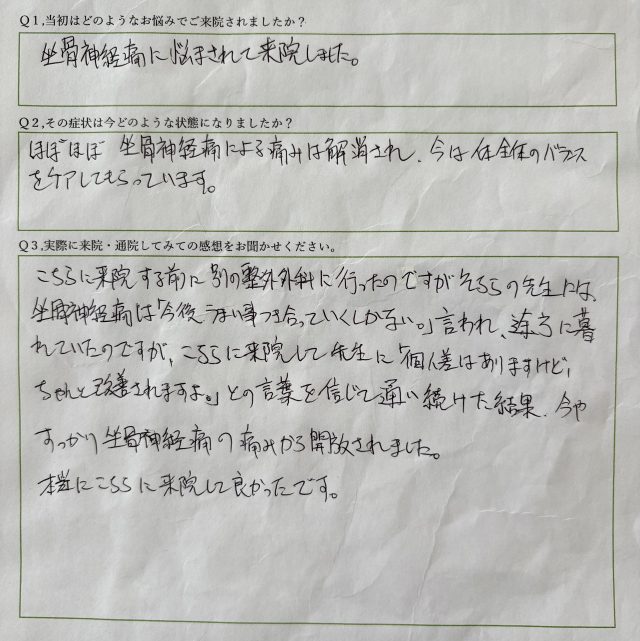 Q1,当初はどのようなお悩みでご来院されましたか？
坐骨神経痛に悩まされて来院しました。
Q2,その症状は今どのような状態になりましたか？
ほぼほぼ 坐骨神経痛による痛みは解消され、今は体全体のバランス
をケアしてもらっています。
Q3,実際に来院・通院してみての感想をお聞かせください。
こちらに来院する前に別の整外外科に行ったのですがそちらの先生には、
坐骨神経痛は「今後うまい事つき合っていくしかない。」言われ、途方に暮
れていたのですが、こちらに来院して先生に「個人差はありますけど、
ちゃんと改善されますよ。」との言葉を信じて通い続けた結果、今や
すっかり坐骨神経痛の痛みから開放されました。
本当にこちらに来院して良かったです。